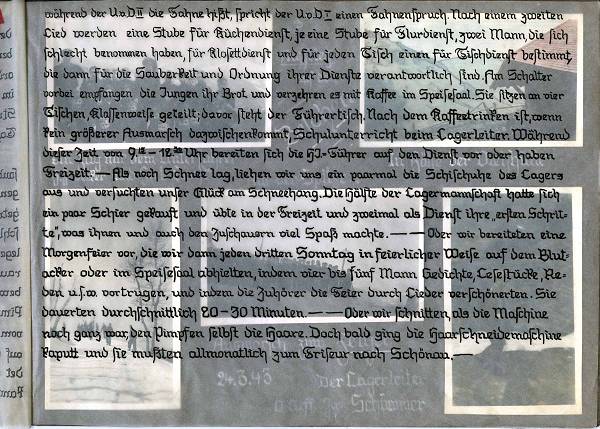 während der U.v.D.II die Fahne hißt, spricht der U.v.D.I einen Fahnenspruch. Nach einem zweiten
Lied werden eine Stube für Küchendienst, je eine Stube für Flurdienst, zwei Mann, die sich
schlecht benommen haben, für Klosettdienst und für jeden Tisch einen für Tischdienst bestimmt,
die dann für die Sauberkeit und Ordnung ihrer Dienste verantwortlich sind. Am Schalter
vorbei empfangen die Jungen ihr Brot und verzehren es mit Kaffee im Speisesaal. Sie sitzen an vier
Tischen klassenweise geteilt; davor steht der Führertisch. Nach dem Kaffeetrinken ist, wenn
kein größerer Ausmarsch dazwischenkommt, Schulunterricht beim Lagerleiter. Während
dieser Zeit von Uhr bereiten sich die HJ.-Führer auf den Dienst vor oder haben
Freizeit. — Als noch Schnee lag, liehen wir uns ein paarmal die Schischuhe des Lagers
aus und versuchten unser Glück am Schneehang. Die Hälfte der Lagermannschaft hatte sich
ein paar Schier gekauft und übte in der Freizeit und zweimal als Dienst ihre „ersten Schrit-
te", was ihnen und auch den Zuschauern viel Spaß machte. — — Oder wir bereiteten eine
Morgenfeier vor, die wir dann jeden dritten Sonntag in feierlicher Weise auf dem Blut-
acker oder im Speisesaal abhielten, indem vier bis fünf Mann Gedichte, Lesestücke, Re-
den u.s.w. vortrugen, und indem die Zuhörer die Feier durch Lieder verschönerten. Sie
dauerten durchschnittlich 20-30 Minuten. — — Oder wir schnitten, als die Maschine
noch ganz war, den Pimpfen selbst die Haare. Doch bald ging die Haarschneidemaschine
kaputt und sie mußten allmonatlich zum Friseur nach Schönau. —
24.3.43 Der Lagerleiter